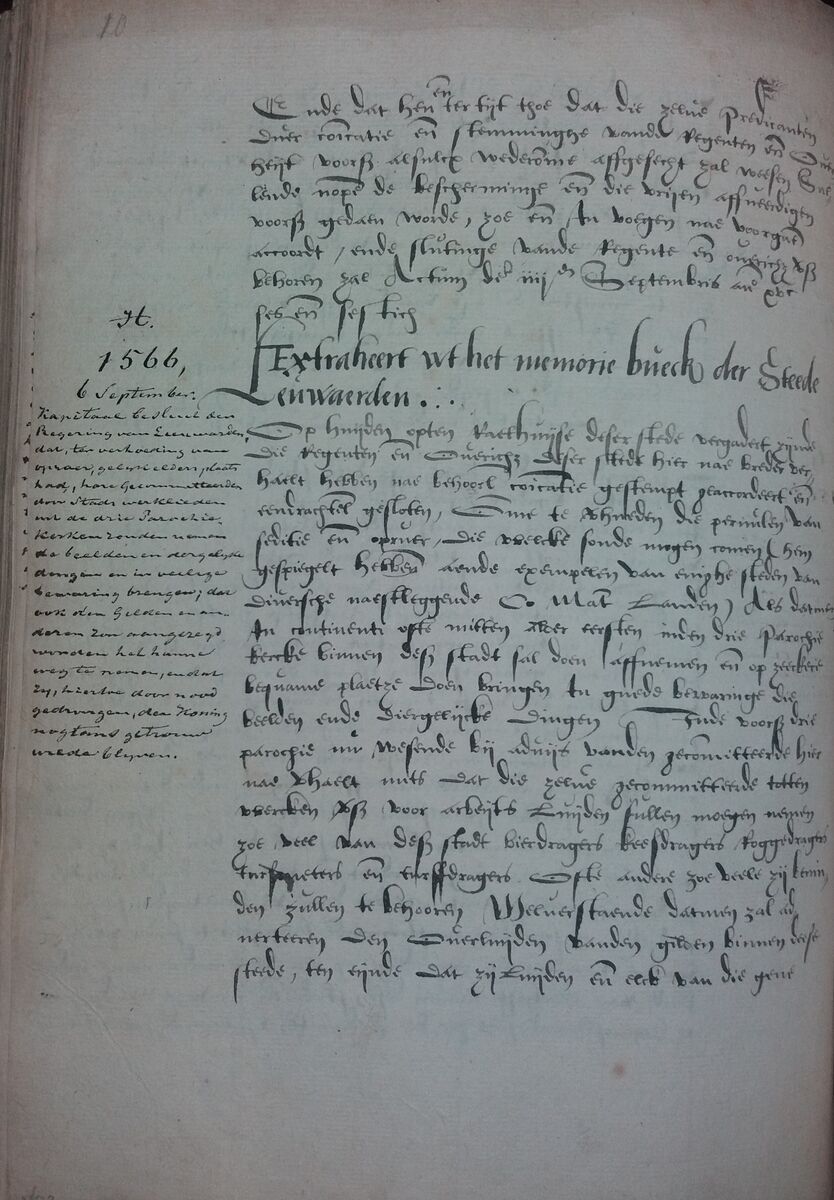 10
Ende dat hen en ter tijt thoe dat die zelue predicanten
duer coicatie en stemminghe vande Regenten en
heijt voorß alsulcx wederome affgesecht zal weesen
lende nopen de bescherminge en die vrijen affueerdigen
voorß gedaen worde, zoe en In voegen nae voorgaen
accoordt, ende slutinge vande Regente en ouericht vß
behoren zal Actum de iiij en Septembris xvc
ses en sestich
H.
1566,
6 September.
Kapitaal besluit der
Regering van Leeuwarden,
dat, ter verhoeding van
oproer, gelijk elders plaats
had, hare Gecommitteerden
door Stads werklieden
uit de drie Parochie-
Kerken zouden nemen
de beelden en dergelijke
dingen en in veilige
bewaring brengen; dat
ook den Gilden en an-
deren zou aangezegd
worden het hunne
weg te nemen, en dat
zij, hiertoe door nood
gedrongen, den Koning
nogtans getrouw
wilde blijven.
Extraheert wt het memorie bueck der Steede
Leuwaerden
Op huijden opten Raethuijse deser stede vergadert zijnde
die Regenten en Ouericht deser stede hier nae breder ver
haelt hebben nae behoorl coicatie gestempt geaccordeert en
eendrachtel gesloten, Ome te vhueden die periculen van
seditie en opruer, die welcke sonde mogen comen (hen
gespiegelt hebben aende exempelen van enighe steden van
diuersche naestleggende Co Mat Landen) Als datmen
In continenti ofte mitten alder eersten inden drie parochie
kercke binnen deß stadt sal doen affnemen en op zeeckere
bequame plaetze doen bringen In guede bewaringe die
beelden ende diergelijcke dingen Inde voorß drie
parochie nu wesende bij aduijs vanden gecomitteerde hier
nae vhaelt mits dat die zelue gecommitteerde totten
wercken vß voor arbeijts Luijden sullen moegen nemen
zoe veel van deß stadt bierdragers keesdragers Roggedragers
turfmeters en turffdragers Ofte andere zoe veele zij beuin
den zullen te behooren Weluerstaende datmen zal ad
uerteeren den Ouerluijden vanden gilden binnen deese
steede, ten eijnde dat zij Luijden en elck van die gene